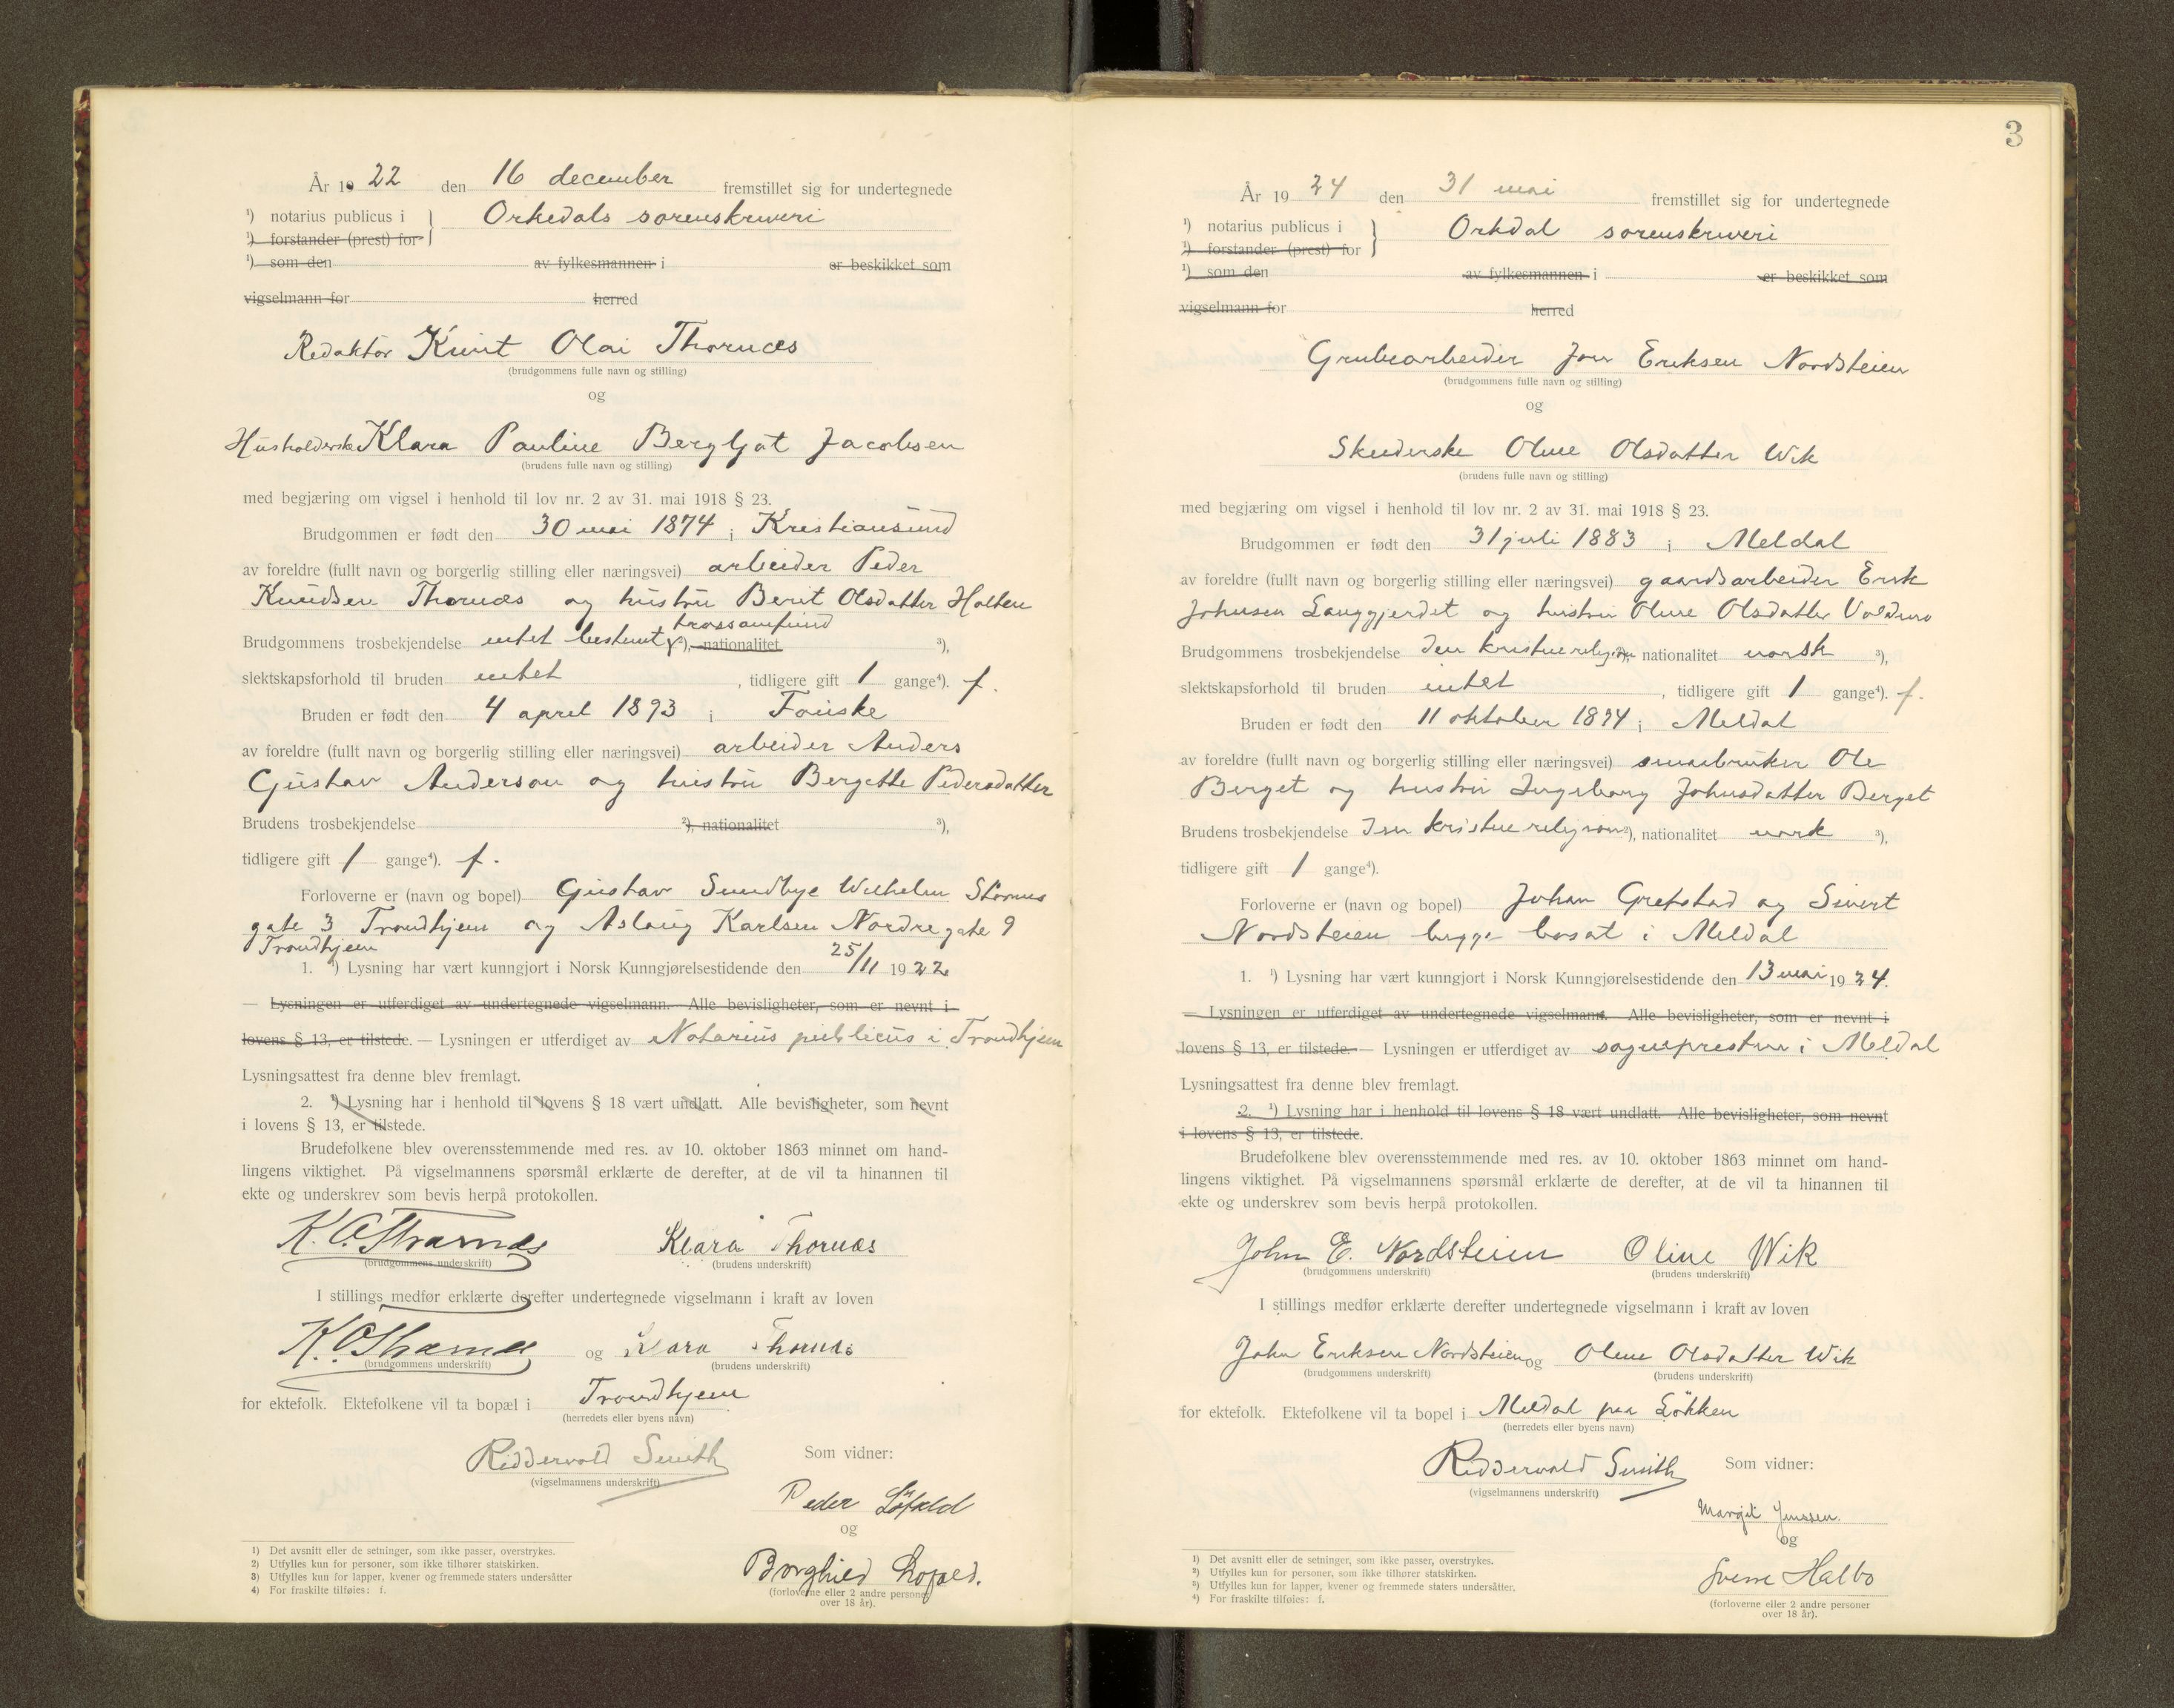 År 1922 den 16 december fremstillet sig for undertegnede
¹) notarius publicus i } Orkedals sorenskriveri
¹) forstander (prest) for
¹) som den av fylkesmannen i er beskikket som
vigselmann for herred
Redaktør Knut Olai Thornæs
(brudgommens fulle navn og stilling)
og
Husholderske Klara Pauline Bergljot Jacobsen
(brudens fulle navn og stilling)
med begjæring om vigsel i henhold til lov nr. 2 av 31. mai 1918 § 23.
Brudgommen er født den 30 mai 1874 i Kristiansund
av foreldre (fullt navn og borgerlig stilling eller næringsvei) arbeider Peder
Knudsen Thornæs og hustru Berit Olsdatter Holten
trossamfund
Brudgommens trosbekjendelse intet bestemt ²), nationalitet ³),
slektskapsforhold til bruden intet , tidligere gift 1 gange⁴). f.
Bruden er født den 4 april 1893 i Fouske
av foreldre (fullt navn og borgerlig stilling eller næringsvei) arbeider Anders
Gustav Anderson og hustru Bergette Pedersdatter
Brudens trosbekjendelse ²), nationalitet ³),
tidligere gift 1 gange⁴). f.
Forloverne er (navn og bopel) Gustav Sundbye Wilhelm Storms
gate 3 Trondhjem og Aslaug Karlsen Nordre gate 9
Trondhjem
1. ¹) Lysning har vært kunngjort i Norsk Kunngjørelsestidende den 25/11 1922
— Lysningen er utferdiget av undertegnede vigselmann. Alle bevisligheter, som er nevnt i
lovens § 13, er tilstede. — Lysningen er utferdiget av Notarius publicus i Trondhjem
Lysningsattest fra denne blev fremlagt.
2. ¹) Lysning har i henhold til lovens § 18 vært undlatt. Alle bevisligheter, som nevnt
i lovens § 13, er tilstede.
Brudefolkene blev overensstemmende med res. av 10. oktober 1863 minnet om hand-
lingens viktighet. På vigselmannens spørsmål erklærte de derefter, at de vil ta hinannen til
ekte og underskrev som bevis herpå protokollen.
K.O. Thornæs Klara Thornæs
(brudgommens underskrift) (brudens underskrift)
I stillings medfør erklærte derefter undertegnede vigselmann i kraft av loven
K.O. Thornæs og Klara Thornæs
(brudgommens underskrift) (brudens underskrift)
for ektefolk. Ektefolkene vil ta bopæl i Trondhjem
(herredets eller byens navn)
Riddervold Smith Som vidner:
(vigselmannens underskrift)
Peder
og
Borghild
(forloverne eller 2 andre personer
over 18 år).
1) Det avsnitt eller de setninger, som ikke passer, overstrykes.
2) Utfylles kun for personer, som ikke tilhører statskirken.
3) Utfylles kun for lapper, kvener og fremmede staters undersåtter
4) For fraskilte tilføies: f.
3
År 1924 den 31 mai fremstillet sig for undertegnede
¹) notarius publicus i } Orkdal sorenskriveri
¹) forstander (prest) for
¹) som den av fylkesmannen i er beskikket som
vigselmann for herred
Grubearbeider Jon Eriksen Nordsteien
(brudgommens fulle navn og stilling)
og
Oline Olsdatter Wik
(brudens fulle navn og stilling)
med begjæring om vigsel i henhold til lov nr. 2 av 31. mai 1918 § 23.
Brudgommen er født den 31 juli 1883 i Meldal
av foreldre (fullt navn og borgerlig stilling eller næringsvei) gaardsarbeider Erik
Johnsen Langgjerdet og hustru Oline Olsdatter
Brudgommens trosbekjendelse den kristne religion nationalitet norsk ³),
slektskapsforhold til bruden intet , tidligere gift 1 gange⁴). f.
Bruden er født den 11 oktober 1874 i Meldal
av foreldre (fullt navn og borgerlig stilling eller næringsvei) smaabruker Ole
Berget og hustru Ingeborg Johnsdatter Berget
Brudens trosbekjendelse den kristne religion ²), nationalitet norsk ³),
tidligere gift 1 gange⁴).
Forloverne er (navn og bopel) Johan Grefstad og Sivert
Nordsteien begge bosat i Meldal
1. ¹) Lysning har vært kunngjort i Norsk Kunngjørelsestidende den 13 mai 1924.
— Lysningen er utferdiget av undertegnede vigselmann. Alle bevisligheter, som er nevnt i
lovens § 13, er tilstede. — Lysningen er utferdiget av sognepresten i Meldal
Lysningsattest fra denne blev fremlagt.
2. ¹) Lysning har i henhold til lovens § 18 vært undlatt. Alle bevisligheter, som nevnt
i lovens § 13, er tilstede.
Brudefolkene blev overensstemmende med res. av 10. oktober 1863 minnet om hand-
lingens viktighet. På vigselmannens spørsmål erklærte de derefter, at de vil ta hinannen til
ekte og underskrev som bevis herpå protokollen.
John E. Nordsteien Oline Wik
(brudgommens underskrift) (brudens underskrift)
I stillings medfør erklærte derefter undertegnede vigselmann i kraft av loven
John Eriksen Nordsteien og Oline Olsdatter Wik
(brudgommens underskrift) (brudens underskrift)
for ektefolk. Ektefolkene vil ta bopel i Meldal paa Løkken
(herredets eller byens navn)
Riddervold Smith Som vidner:
(vigselmannens underskrift)
Margit Jenssen.
og
Sverre Halbo
(forloverne eller 2 andre personer
over 18 år).
¹) Det avsnitt eller de setninger, som ikke passer, overstrykes.
²) Utfylles kun for personer, som ikke tilhører statskirken.
³) Utfylles kun for lapper, kvener og fremmede staters undersåtter.
⁴) For fraskilte tilføies: f.